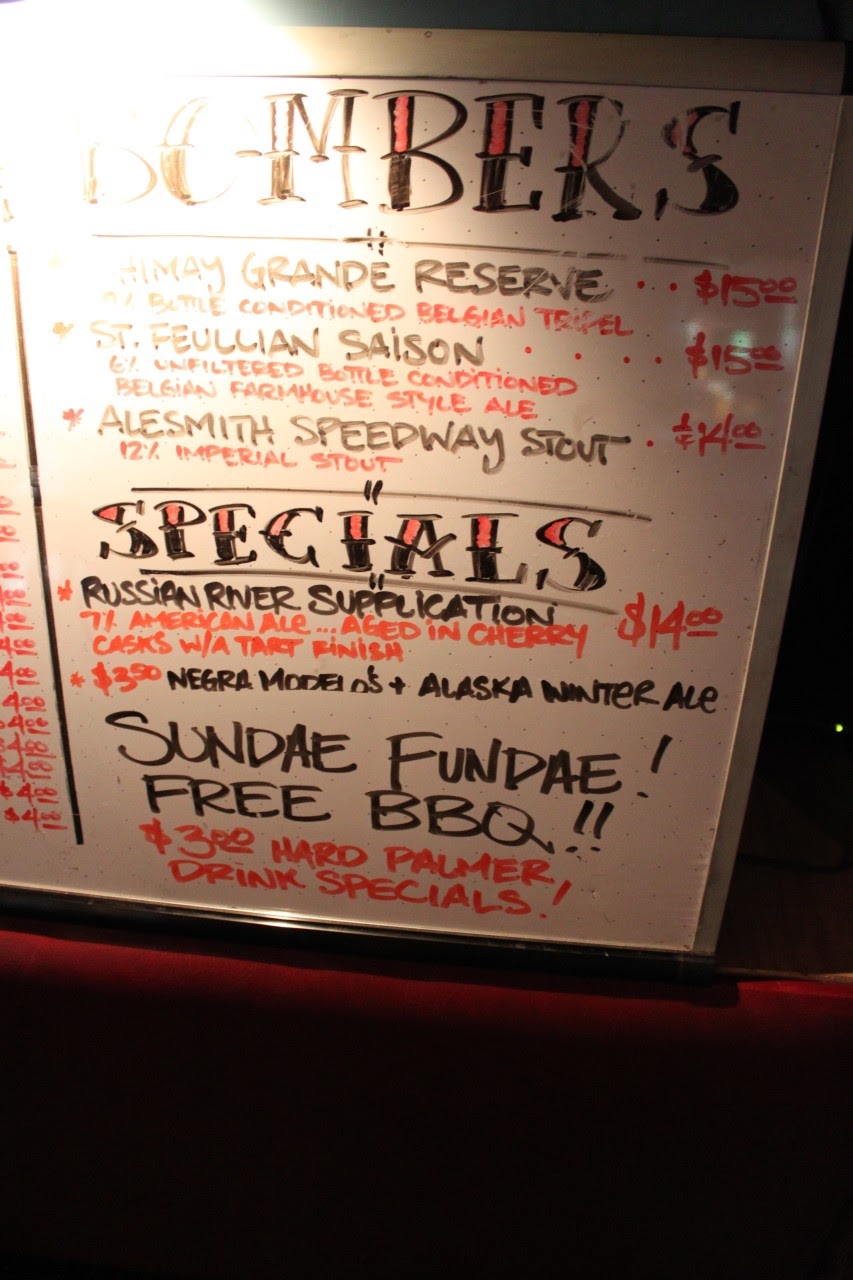 BOMBERS
HIMAY GRANDE RESERVE . . . $15.00
% BOTTLE CONDITIONED BELGIAN TRIPEL
* ST. FEULLIAN SAISON . . . . $15.00
6% UNFILTERED BOTTLE CONDITIONED
BELGIAN FARMHOUSE STYLE ALE
* ALESMITH SPEEDWAY STOUT . $14.00
12% IMPERIAL STOUT
SPECIALS
* RUSSIAN RIVER SUPPLICATION $14.00
7% AMERICAN ALE ... AGED IN CHERRY
CASKS W/A TART FINISH
* $3.50 NEGRA MODELO'S + ALASKA WINTER ALE
SUNDAE FUNDAE!
FREE BBQ!!
$3.00 HARD PALMER
DRINK SPECIALS!
4.00
$4.00
$4.00